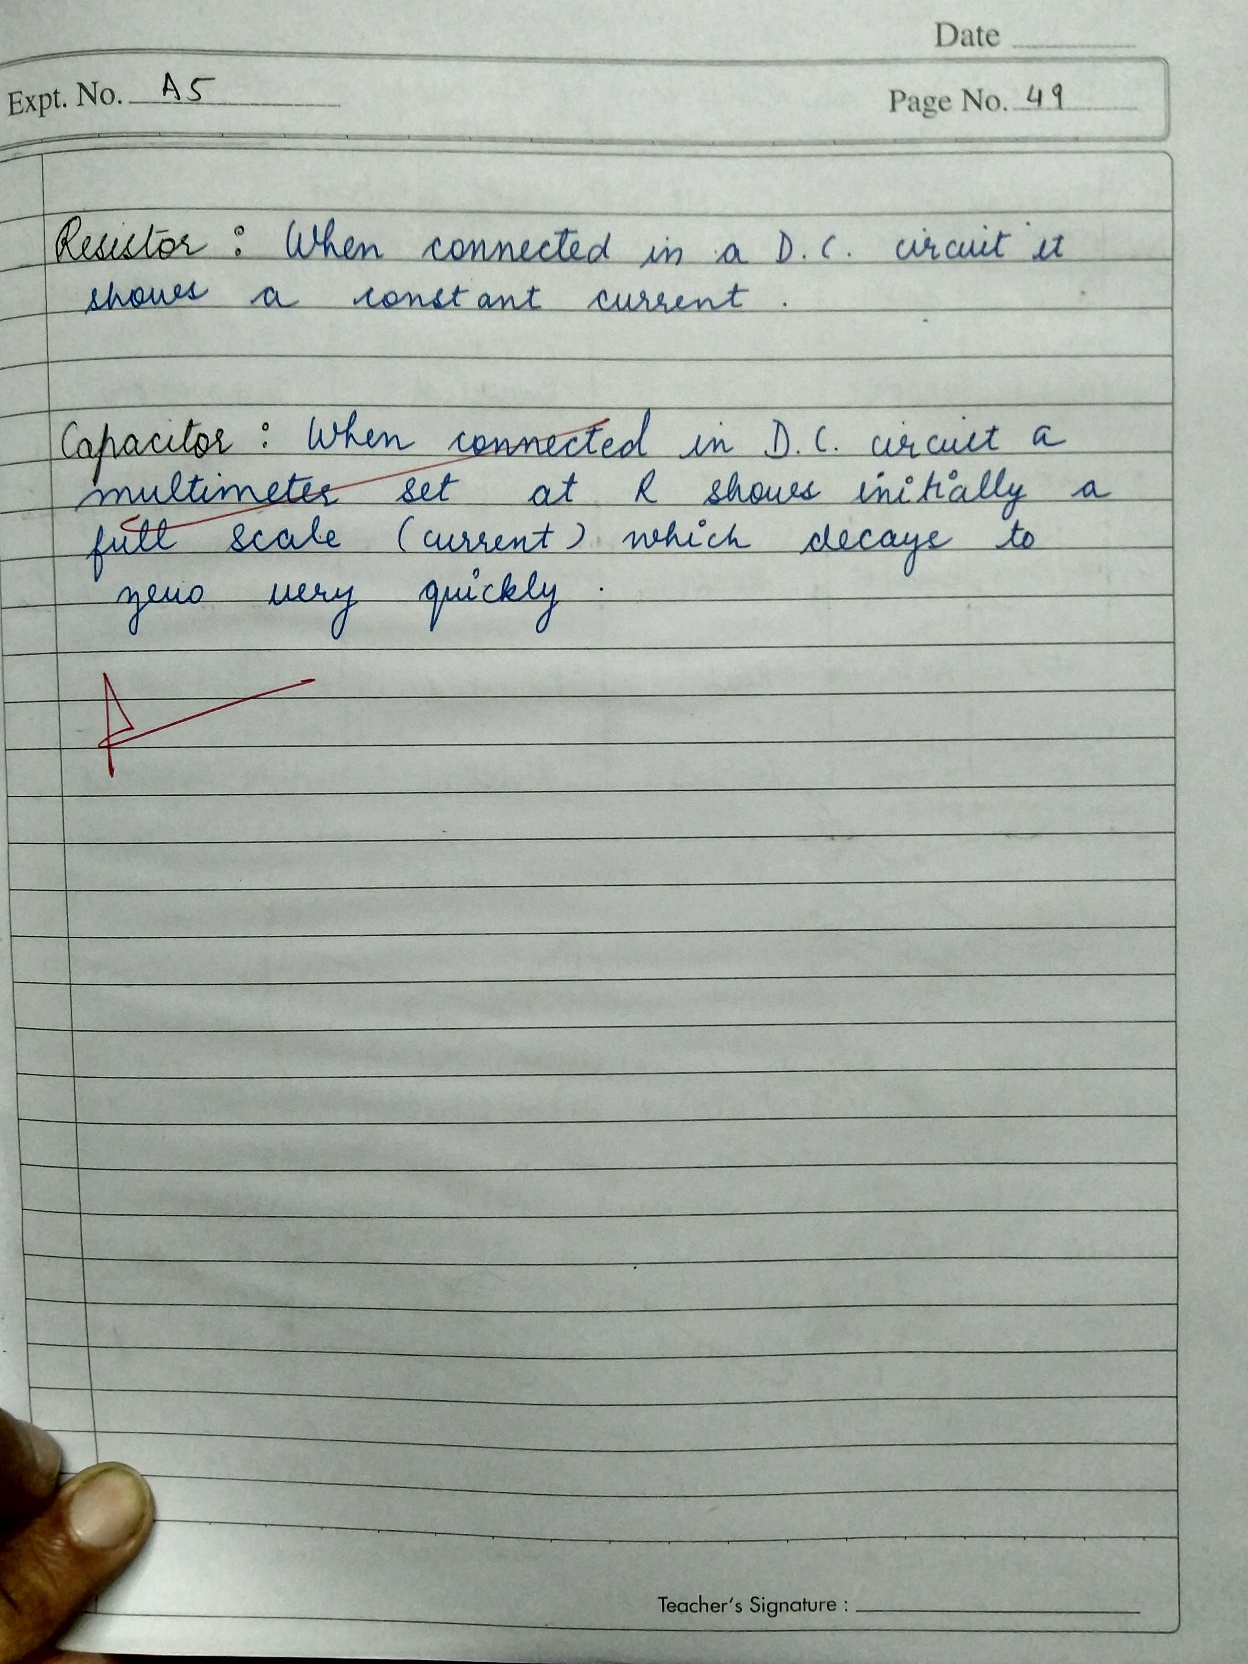 Date
Expt. No. A5
Page No. 49
Resistor : When connected in a D.C. circuit it
shows a constant current .
Capacitor : When connected in D.C. circuit a
multimeter set at R shows initially a
full scale (current) which decays to
zero very quickly .
Teacher's Signature :